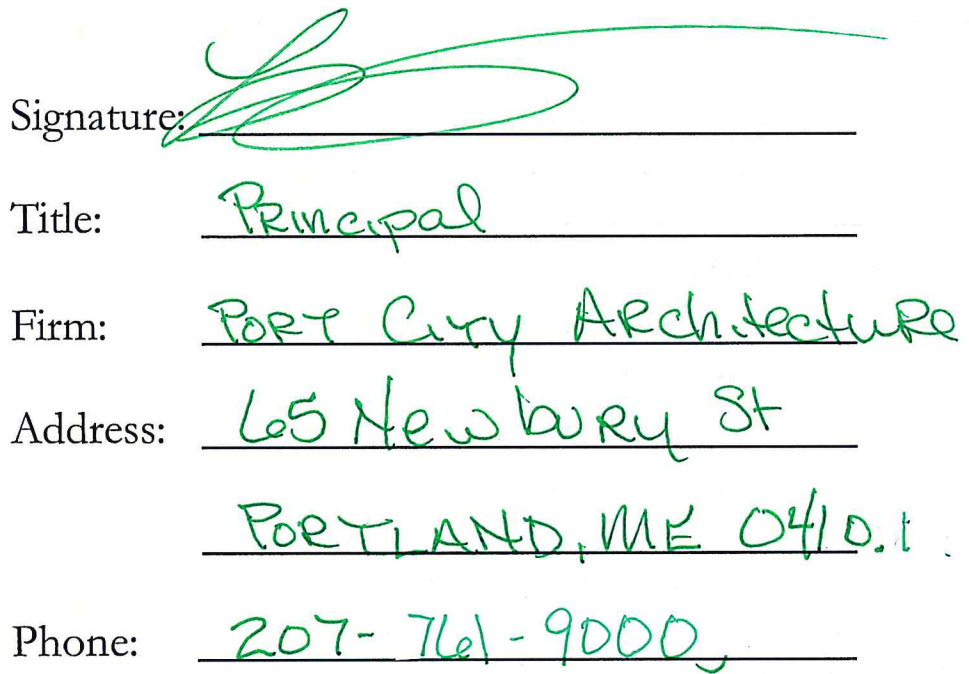 Signature:
Title: Principal
Firm: Port City Architecture
Address: 65 Newbury St
PORTLAND, ME 04101
Phone: 207-761-9000